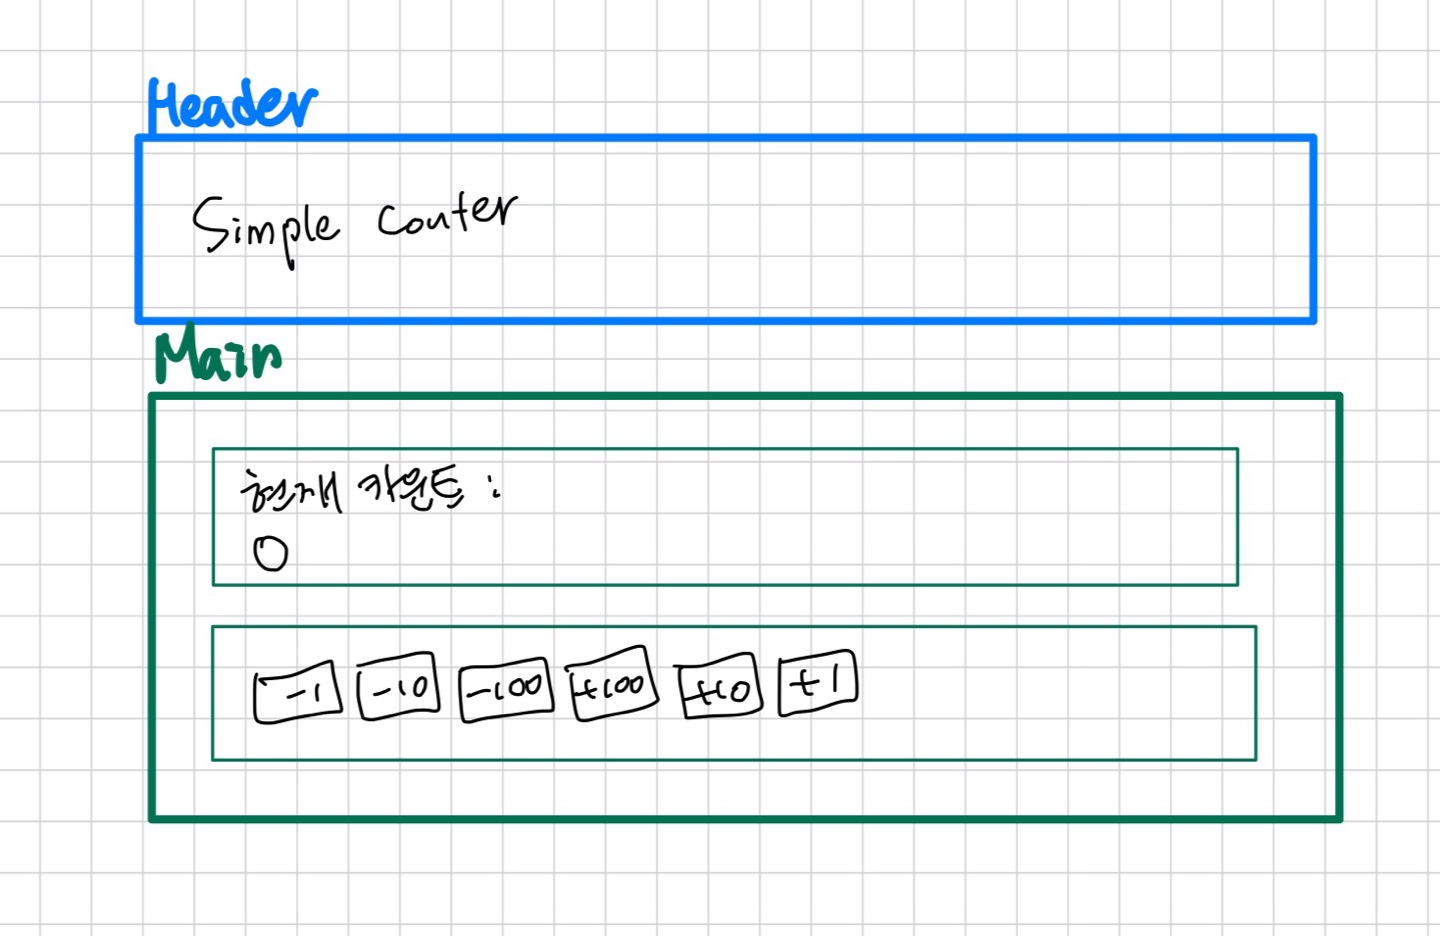 Header
Simple Conter
Main
현재 카운트 :
0
-1 -10 -100 +100 +10 +1